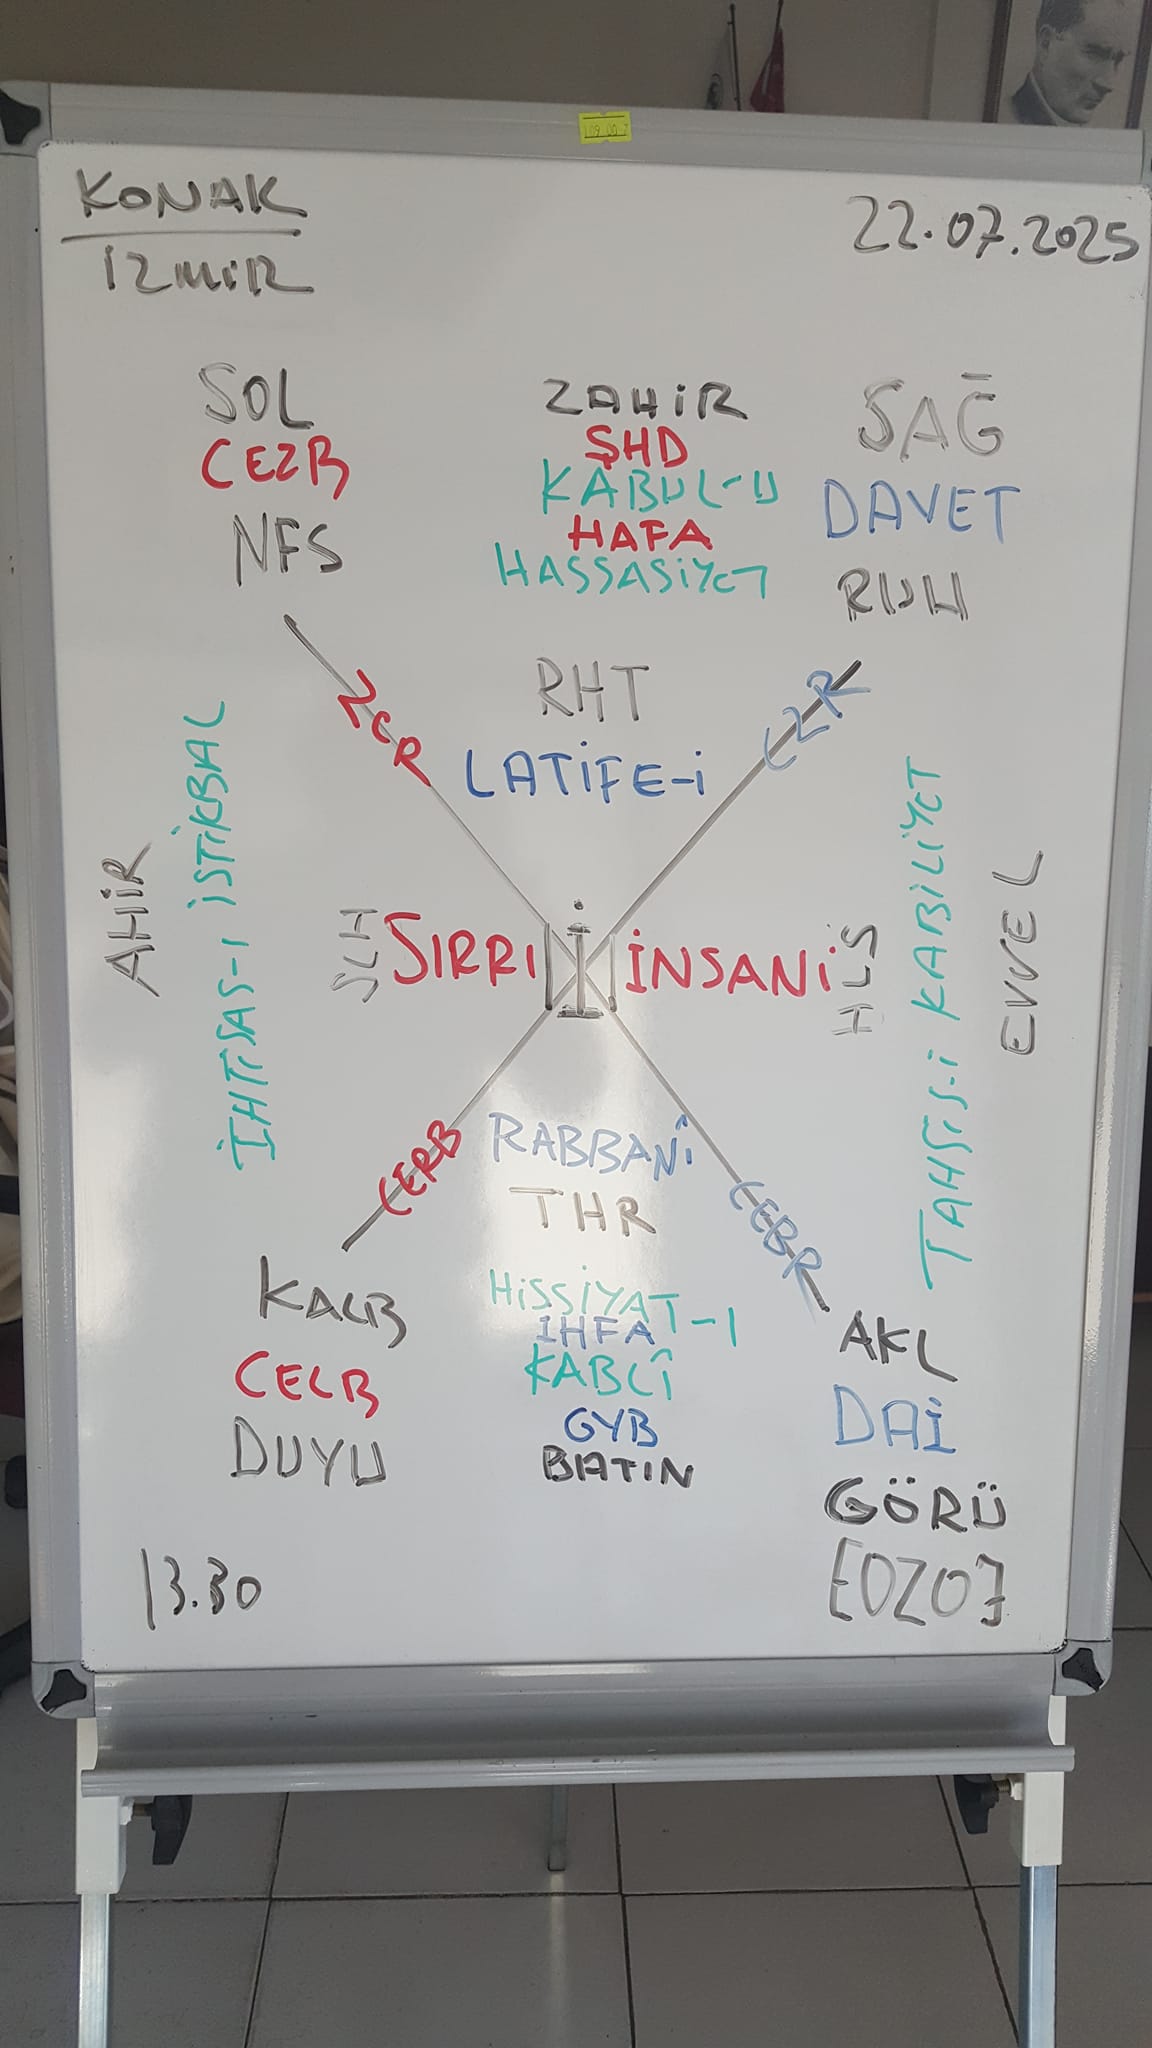 KONAK
İZMİR
22.07.2025
SOL
CEZB
NFS
ZAHİR
ŞHD
KABUL-U
HAFA
HASSASİYET
SAĞ
DAVET
RUH
ZCR
RHT
CZR
LATİFE-İ
AHİR
İHTİSAS-I İSTİKBAL
SLH
SIRRI
İ
İNSANİ
HLS
TAHSİS-İ KABİLİYET
EVVEL
CERB
RABBANİ
THR
CEBR
KALB
CELB
DUYU
HİSSİYAT-I
IHFA
KABLÎ
GYB
BATIN
AKL
DAİ
GÖRÜ
[OZO]
13.30